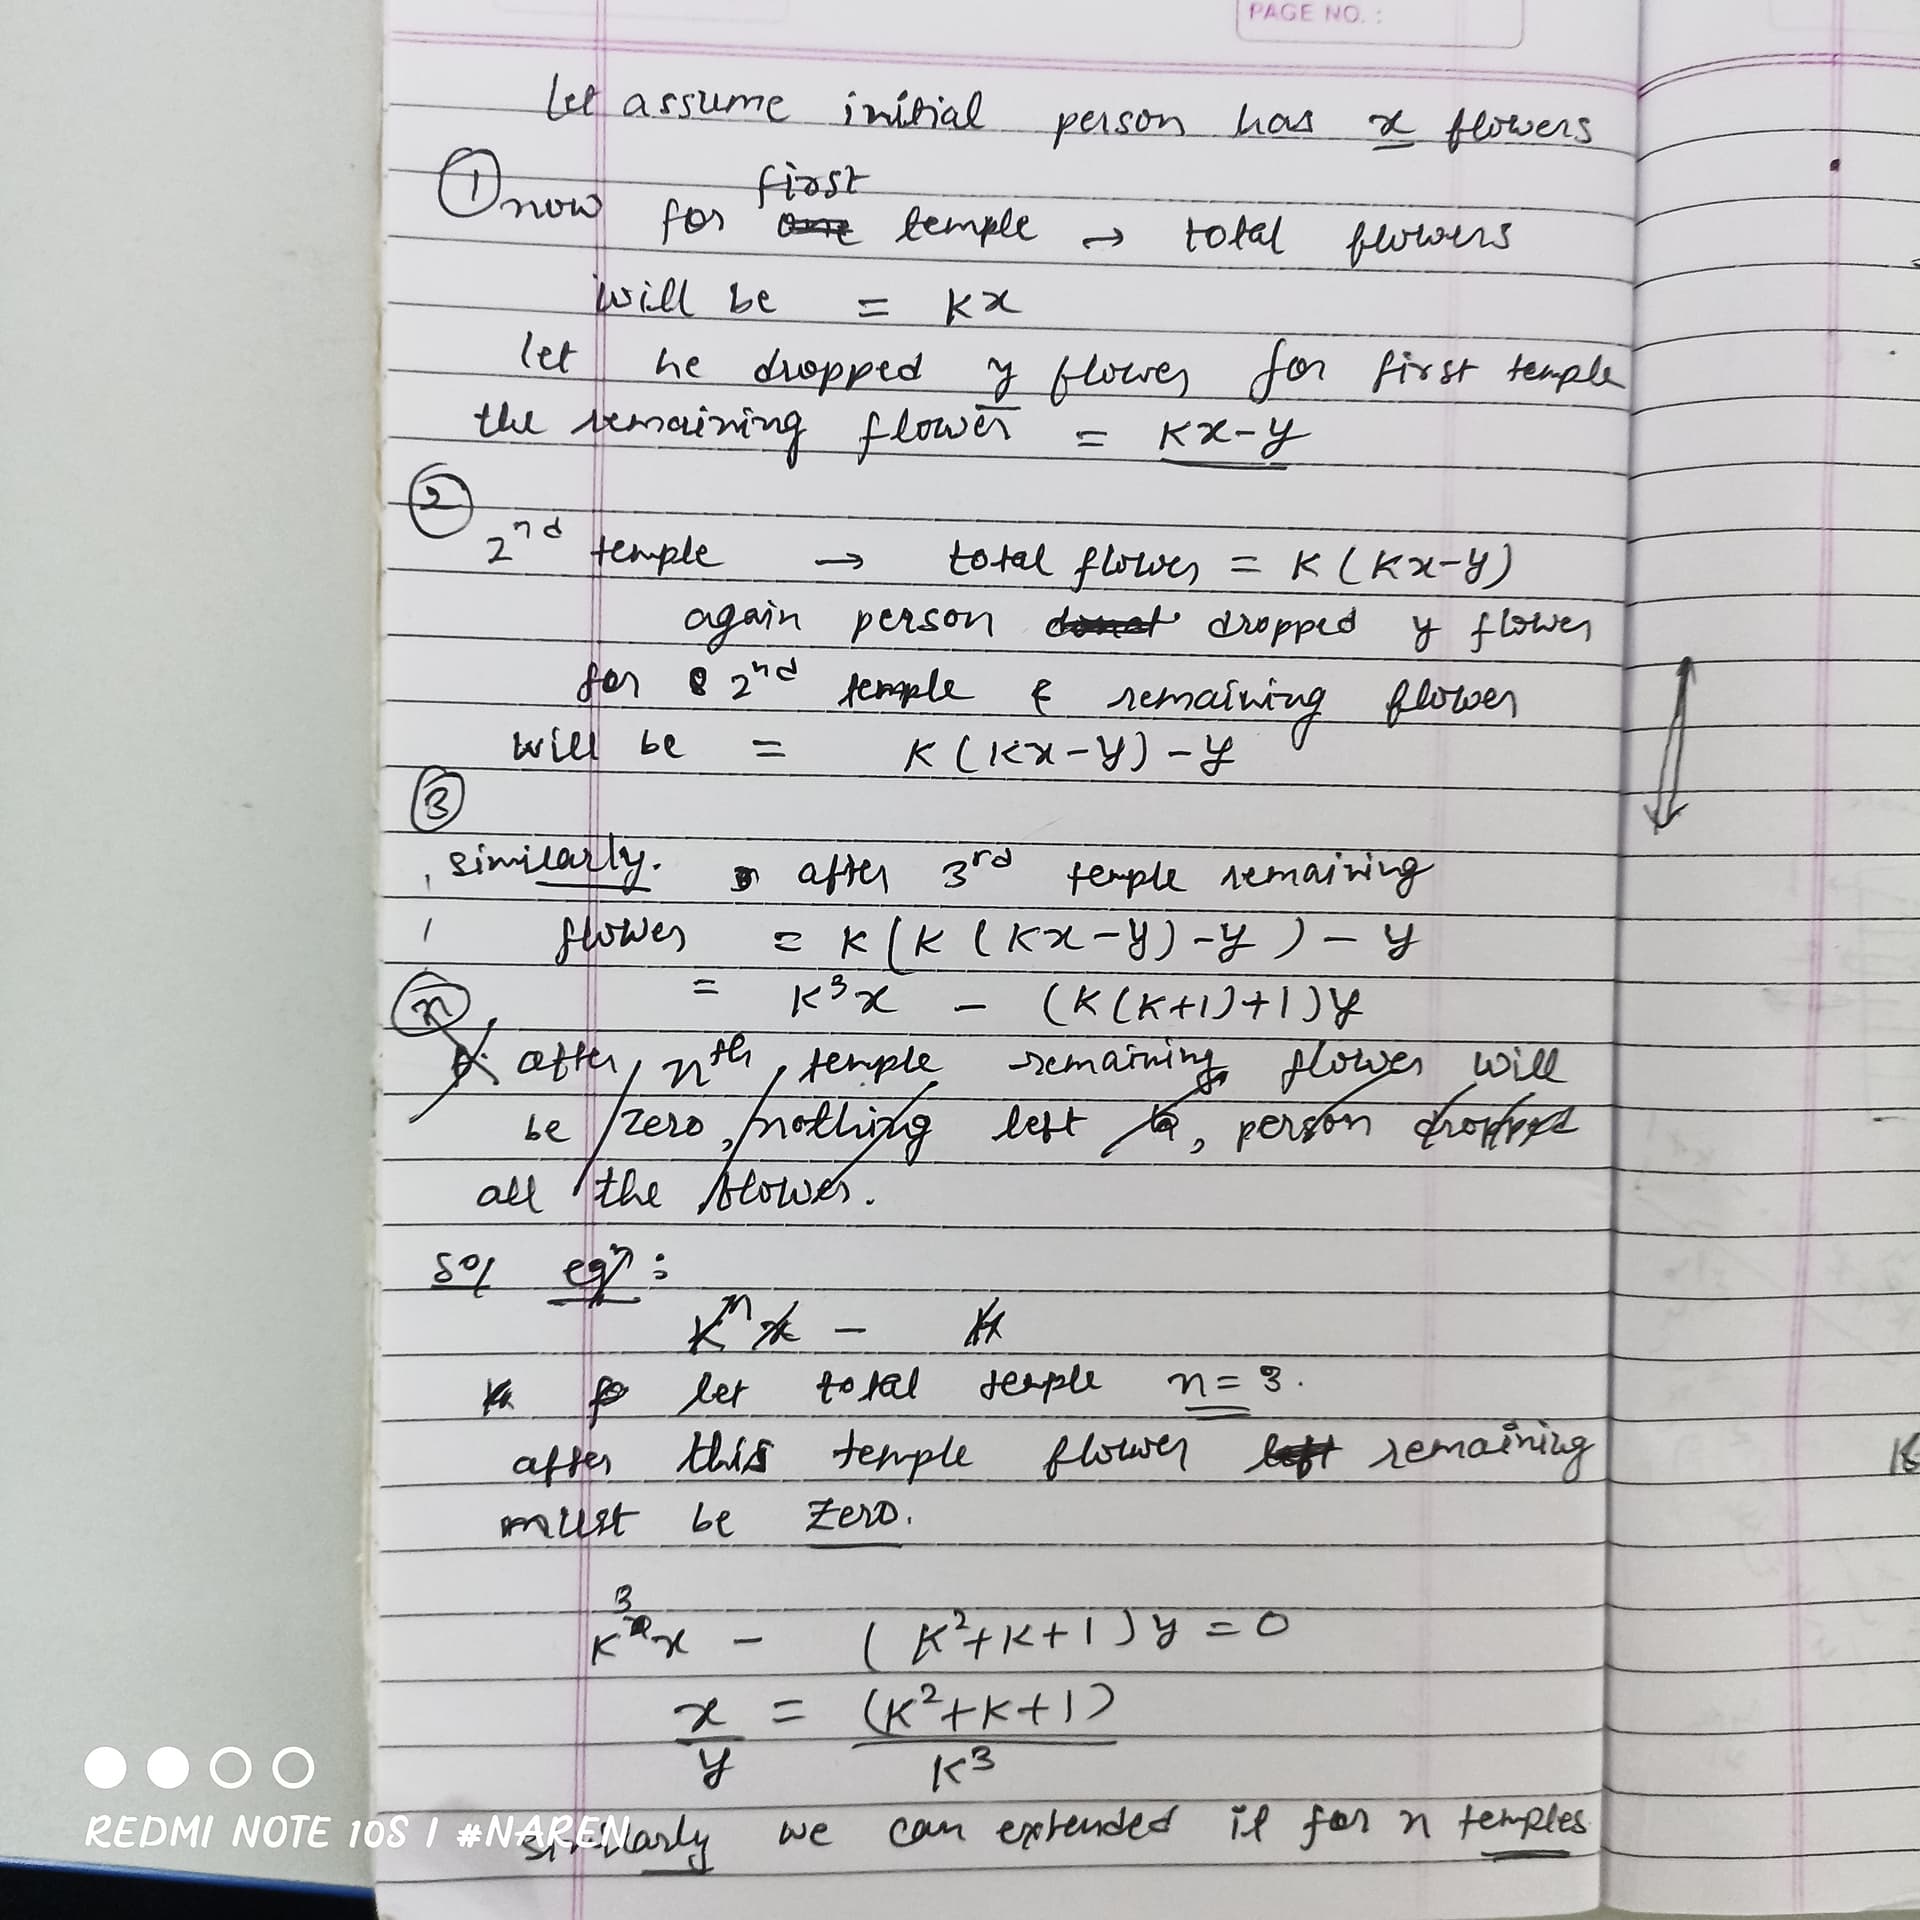 PAGE NO. :
Let assume initial person has x flowers
① now for first temple → total flowers
will be = Kx
let he dropped y flower for first temple
the remaining flower = Kx-y
②
2nd temple → total flower = K(Kx-y)
again person dropped y flower
for 2nd temple & remaining flower
will be = K(Kx-y)-y
③
similarly. after 3rd temple remaining
flower = K(K(Kx-y)-y)-y
= K³x - (K(K+1)+1)y
ⓝ
after nth temple remaining flower will
be zero, nothing left, person dropped
all the flower.
So/ eqn:
K^n x -
let total temple n=3.
after this temple flower remaining
must be zero.
K³x - (K²+K+1)y=0
x/y = (K²+K+1)/K³
similarly we can extended it for n temples
REDMI NOTE 10S | #NAREN